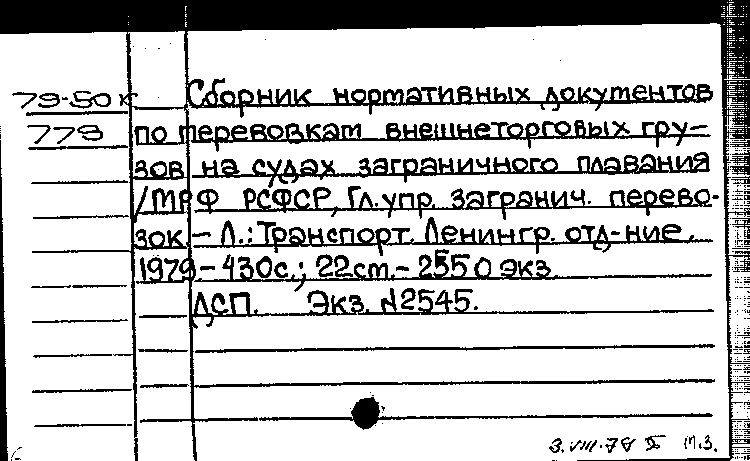 79-50к Сборник нормативных документов
778 по перевозкам внешнеторговых гру-
зов на судах заграничного плавания
/МРФ РСФСР, Гл. упр. загранич. перево-
зок. – Л.: Транспорт. Ленингр. отд-ние,
1979 – 430с.; 22ст. – 2550 экз
ДСП. Экз. №2545.
3.VIII-78 М.З.